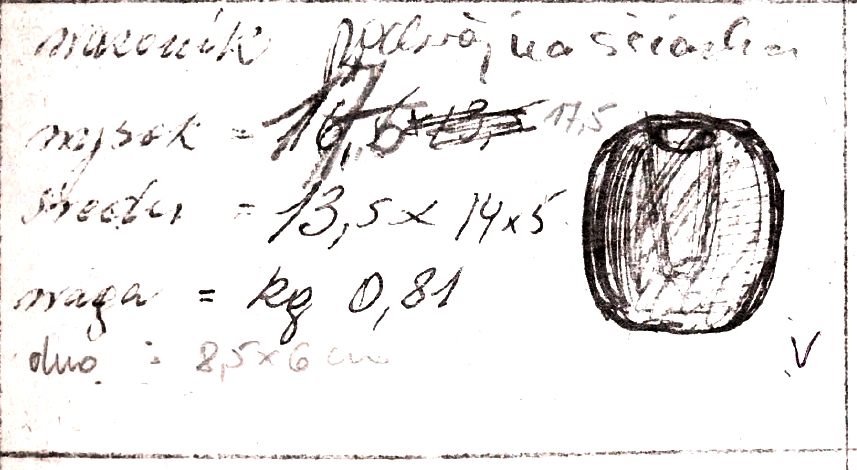 wazonik podwójna ścianka
wysok = 17,5
średn = 13,5 x 14 x 5
waga = kg 0,81
dno : 8,5 x 6 cm
V